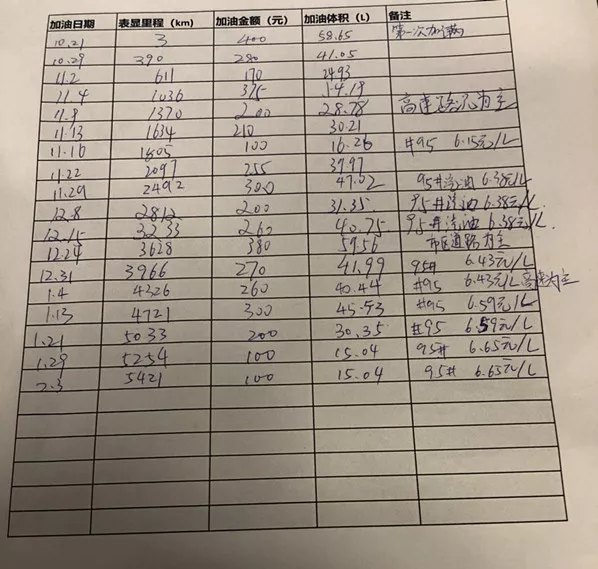 加油日期 表显里程（km） 加油金额（元） 加油体积（L） 备注
10.21 3 400 58.65 第一次加满
10.29 390 280 41.05
11.2 611 170 24.93
11.4 1036 375
11.8 1370 200 28.78 高速路况为主
11.13 1634 210 30.21
11.16 1805 100 16.26 #95 6.15元/L
11.22 2097 255 37.97
11.29 2492 300 47.02 95#汽油 6.38元/L
12.8 2812 200 31.35 95#汽油 6.38元/L
12.15 3233 260 40.75 95#汽油 6.38元/L
12.24 3628 380 59.56 市区道路为主
12.31 3966 270 41.99 95# 6.43元/L
1.4 4326 260 40.44 #95 6.43元/L 高速为主
1.13 4721 300 45.53 #95 6.59元/L
1.21 5033 200 30.35 #95 6.59元/L
1.29 5254 100 15.04 95# 6.65元/L
2.3 5421 100 15.04 95# 6.65元/L